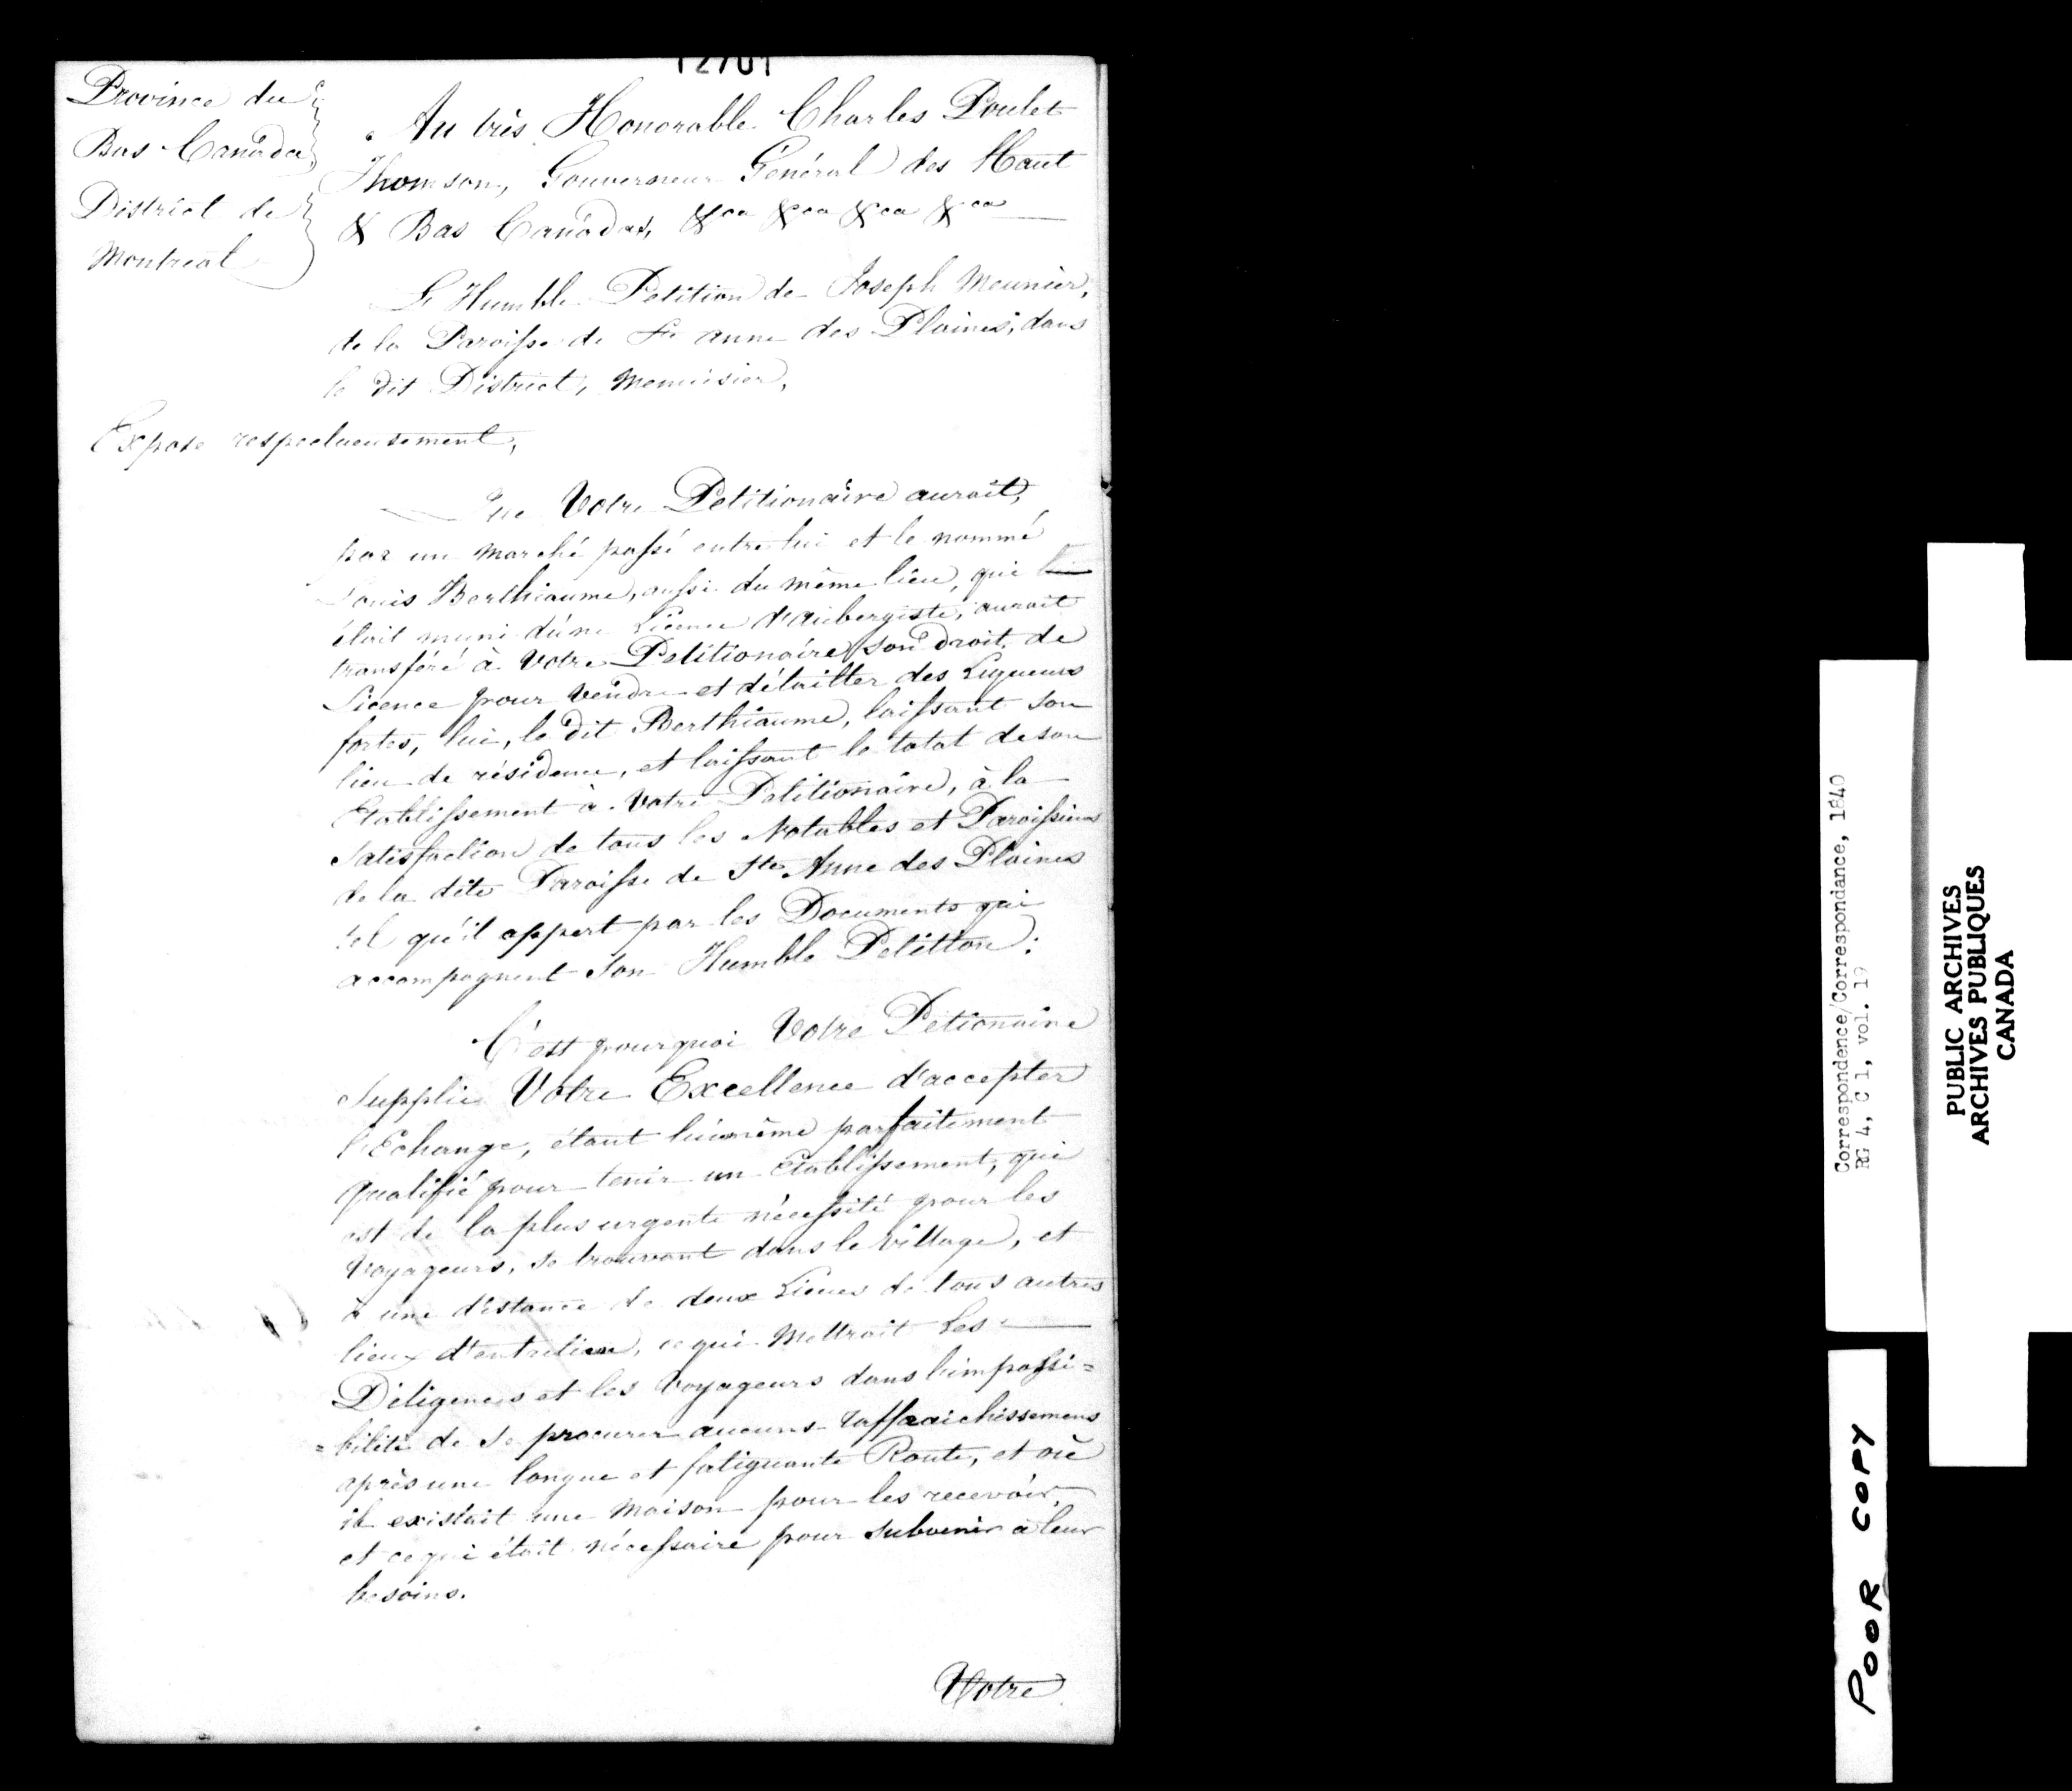 12701
Province du
Bas Canada
District de
Montreal
Au très Honorable Charles Poulet
Thomson, Gouverneur Général des Haut
& Bas Canadas, &ca &ca &ca &ca
L'Humble Petition de Joseph Meunier,
de la Paroisse de Ste anne des Plaines, dans
le dit District, Menuisier,
Expose respectueusement,
Que Votre Petitionaire auroit,
par un marché passé entre lui et le nommé
Louis Berthiaume, aussi du même lieu, qui lui
était muni d'une Licence d'aubergiste, auroit
transféré à Votre Petitionaire son droit de
Licence pour vendre et détailler des Liqueurs
fortes, lui, le dit Berthiaume, laissant son
lieu de résidence, et laissant le total de son
Etablissement à Votre Petitionaire, à la
Satisfaction de tous les Notables et Paroissiens
de la dite Paroisse de Ste Anne des Plaines
tel qu'il appert par les Documents qui
accompagnent Son Humble Petition:
C'est pourquoi Votre Petionaire
Supplie Votre Excellence d'accepter
l'Echange, étant lui même parfaitement
qualifié pour tenir un établissement, qui
est de la plus urgente nécessité pour les
Voyageurs, se trouvant dans le village, et
à une distance de deux Lieues de tous autres
lieux d'entretien, ce qui Mettroit Les
Diligences et les Voyageurs dans l'impossi=
=bilité de se procurer aucuns raffraichissemens
après une longue et fatiguante Route, et où
il existait une Maison pour les recevoir,
et ce qui était nécessaire pour Subvenir à leur
besoins.
Votre
Correspondence/Correspondance, 1840
RG 4, C 1, vol. 19
PUBLIC ARCHIVES
ARCHIVES PUBLIQUES
CANADA
POOR COPY